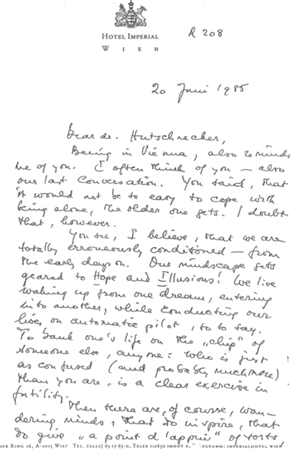 HOTEL IMPERIAL
WIEN
R 208
20 Juni 1985
Dear Dr. Hutschnecker,
Being in Vienna, also reminds
me of you. I often think of you – also
our last conversation. You said, that
it would not be to easy to cope with
being alone, the older one gets. I doubt
that, however.
You see, I believe, that we are
totally erroneously conditioned – from
the early days on. Our mindscape gets
geared to Hope and Illusions! We live
waking up from one dream, entering
into another, while conducting our
lives on automatic pilot, so to say.
To bank one's life on the "chip" of
someone else, anyone: who is just
as confused (and probably much more)
than you are, is a clear exercise in
futility.
Then there are, of course, wan-
dering minds: that do inspire, that
do give "a point d'appui" of sorts
RING 16, A-1015 WIEN TEL.